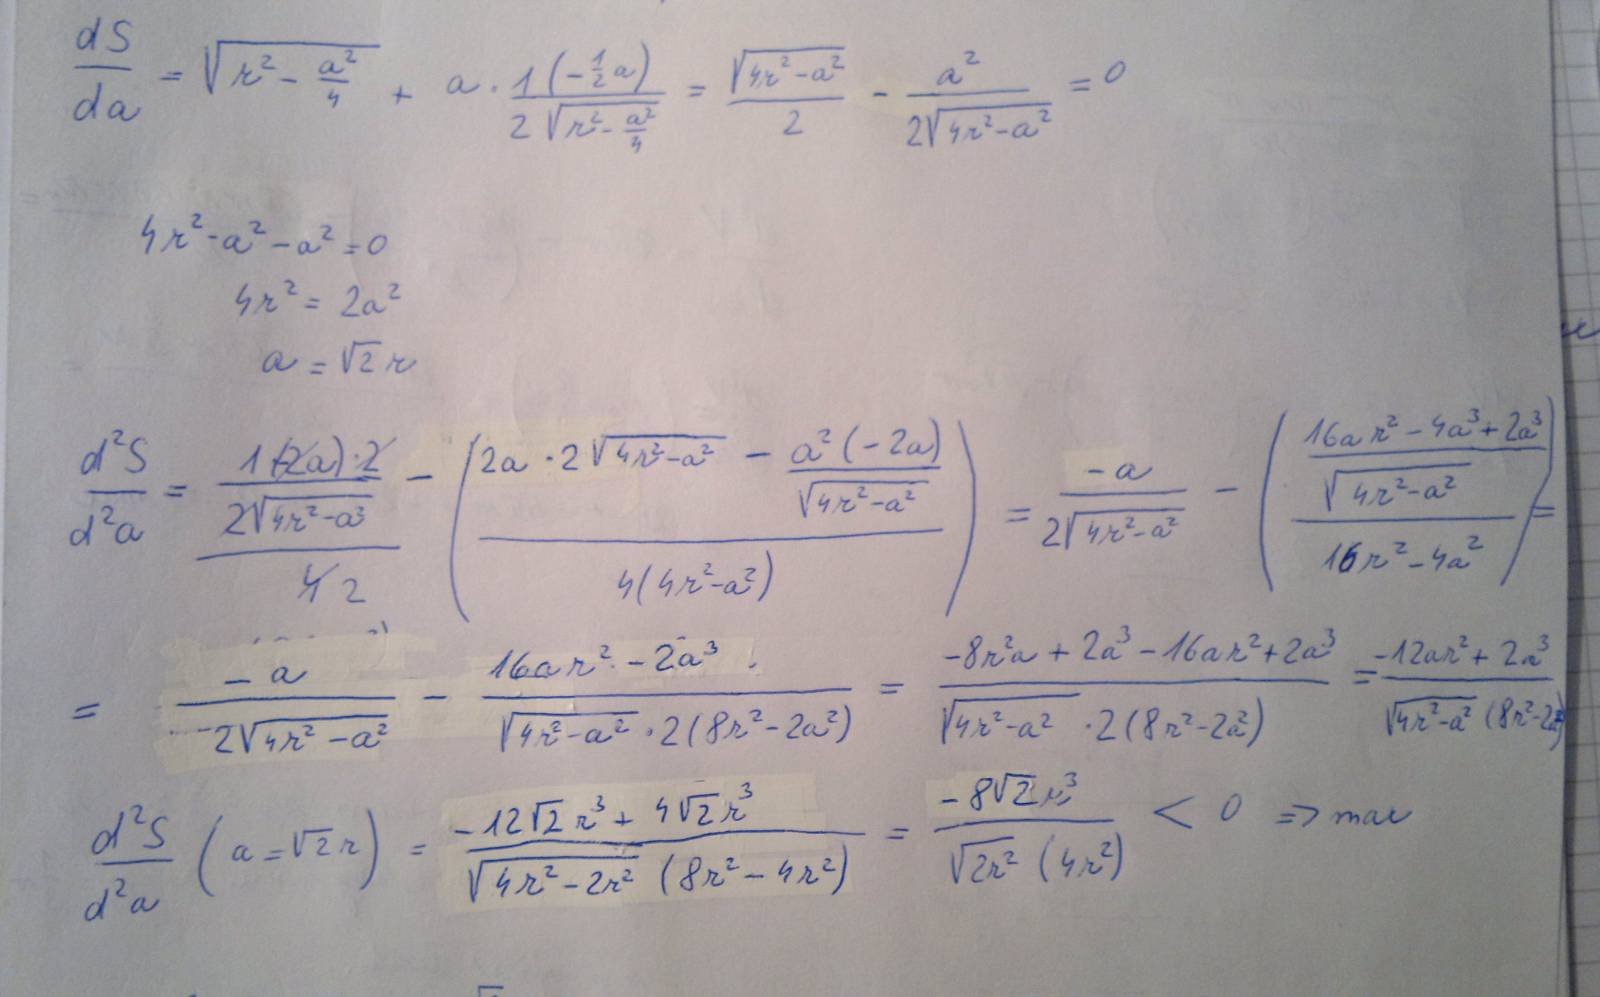 dS/da = √(r² - a²/4) + a · 1(-1/2 a)/(2√(r² - a²/4)) = √(4r² - a²)/2 - a²/(2√(4r² - a²)) = 0
4r² - a² - a² = 0
4r² = 2a²
a = √2 r
d²S/d²a = (1(-2a)·2/(2√(4r² - a²)))/(4 2) - ((2a · 2√(4r² - a²) - a²(-2a)/√(4r² - a²))/(4(4r² - a²))) = -a/(2√(4r² - a²)) - (((16ar² - 4a³ + 2a³)/√(4r² - a²))/(16r² - 4a²)) =
= -a/(2√(4r² - a²)) - (16ar² - 2a³)/(√(4r² - a²) · 2(8r² - 2a²)) = (-8r²a + 2a³ - 16ar² + 2a³)/(√(4r² - a²) · 2(8r² - 2a²)) = (-12ar² + 2a³)/(√(4r² - a²) (8r² - 2a²))
d²S/d²a (a = √2 r) = (-12√2 r³ + 4√2 r³)/(√(4r² - 2r²) (8r² - 4r²)) = -8√2 r³/(√(2r²) (4r²)) < 0 => max